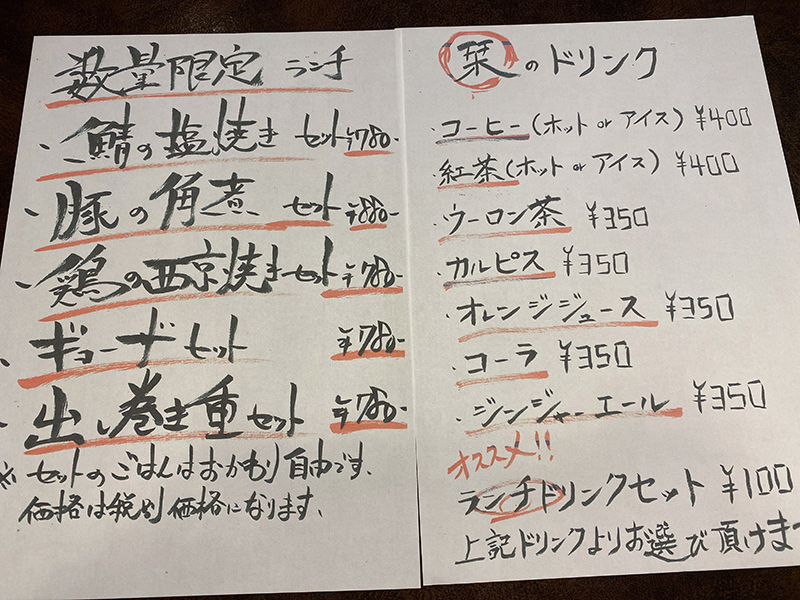 数量限定 ランチ
・鯖の塩焼き セット ¥780-
・豚の角煮 セット ¥880-
・鶏の西京焼きセット ¥780-
・ギョーザセット ¥780-
・出し巻き重セット ¥780-
※セットのごはんはおかわり自由です。
価格は税別価格になります。
栞のドリンク
・コーヒー(ホット or アイス) ¥400
・紅茶(ホット or アイス) ¥400
・ウーロン茶 ¥350
・カルピス ¥350
・オレンジジュース ¥350
・コーラ ¥350
・ジンジャーエール ¥350
オススメ!!
ランチドリンクセット ¥100
上記ドリンクよりお選び頂けます